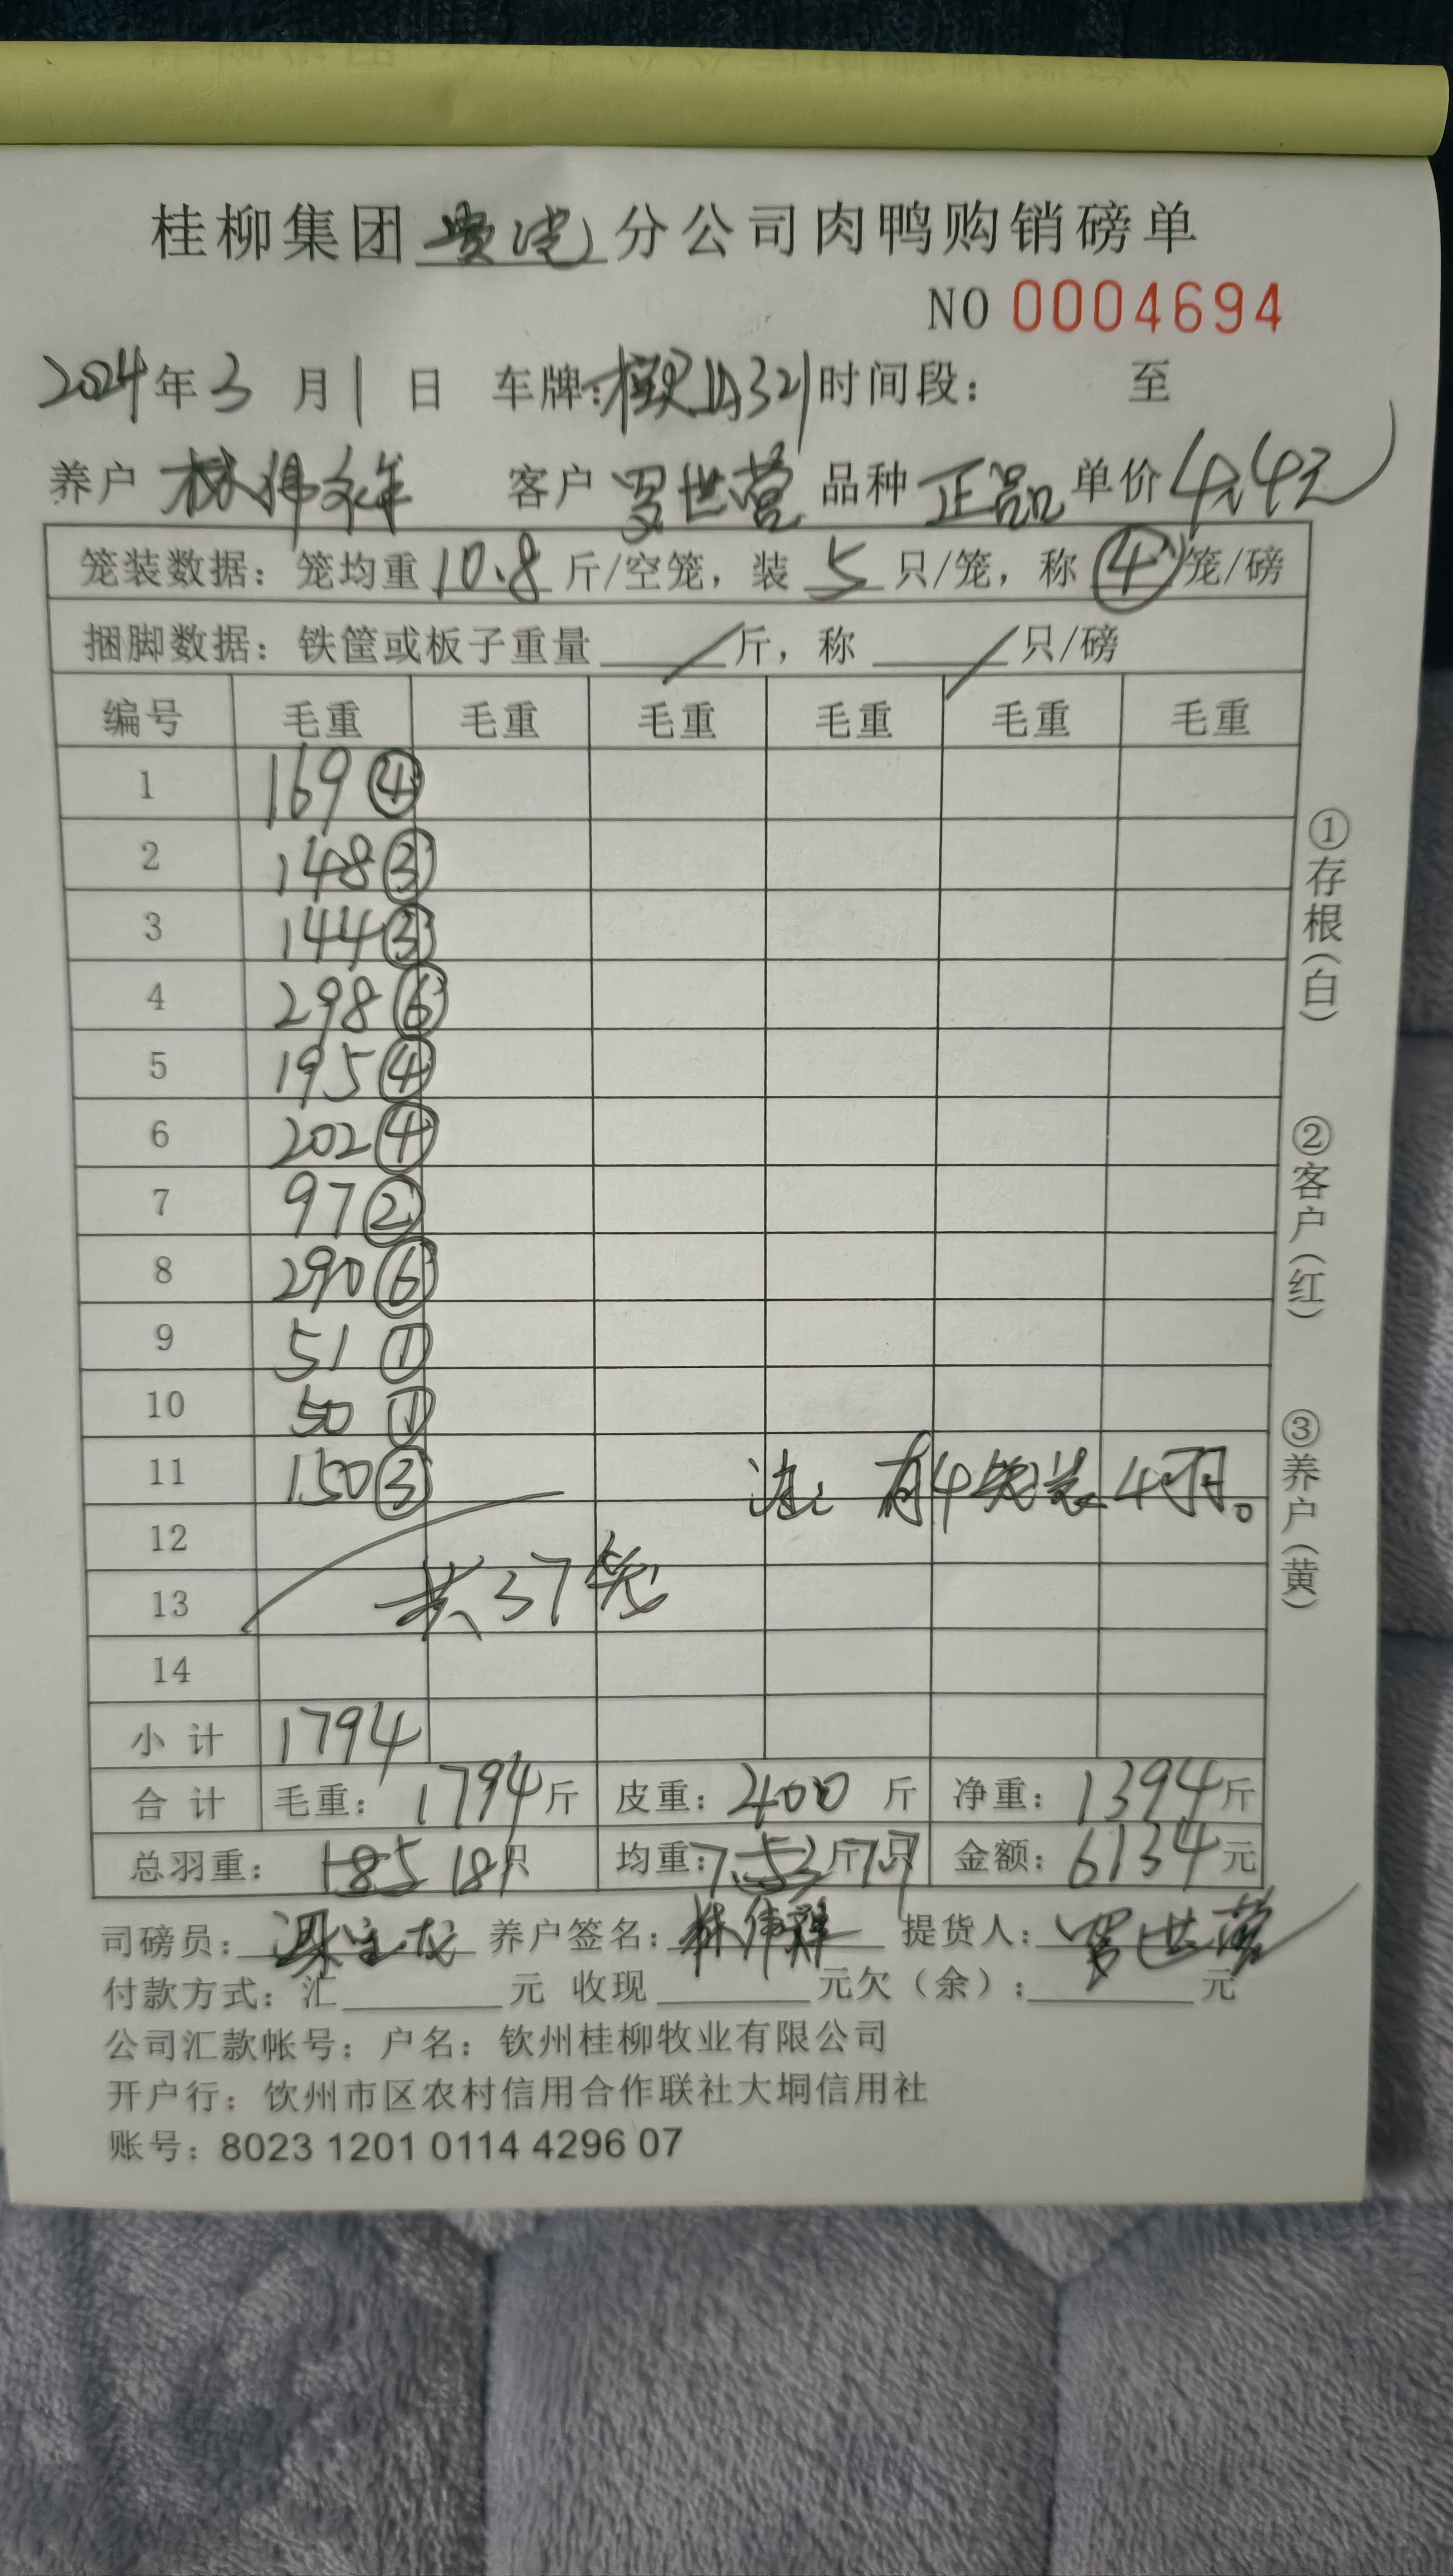 桂柳集团贵港分公司肉鸭购销磅单
NO 0004694
2024年3月1日 车牌: 时间段: 至
养户 林伟祥 客户 罗世营 品种 正品 单价 4.4元
笼装数据: 笼均重 10.8 斤/空笼, 装 5 只/笼, 称 ④ 笼/磅
捆脚数据: 铁筐或板子重量 / 斤, 称 / 只/磅
编号 毛重 毛重 毛重 毛重 毛重 毛重
1 169 ④
2 148 ③
3 144 ③
4 298 ⑥
5 195 ④
6 202 ④
7 97 ②
8 290 ⑥
9 51 ①
10 50 ①
11 150 ③ 注: 有4笼装4羽。
12
13 共37笼
14
小计 1794
合计 毛重: 1794斤 皮重: 400斤 净重: 1394斤
总羽重: 185 181只 均重: 7.53斤/只 7.7 金额: 6134元
司磅员: 养户签名: 林伟祥 提货人: 罗世营
付款方式: 汇 元 收现 元欠(余): 元
公司汇款帐号: 户名: 钦州桂柳牧业有限公司
开户行: 钦州市区农村信用合作联社大垌信用社
账号: 8023 1201 0114 4296 07
①存根(白)
②客户(红)
③养户(黄)